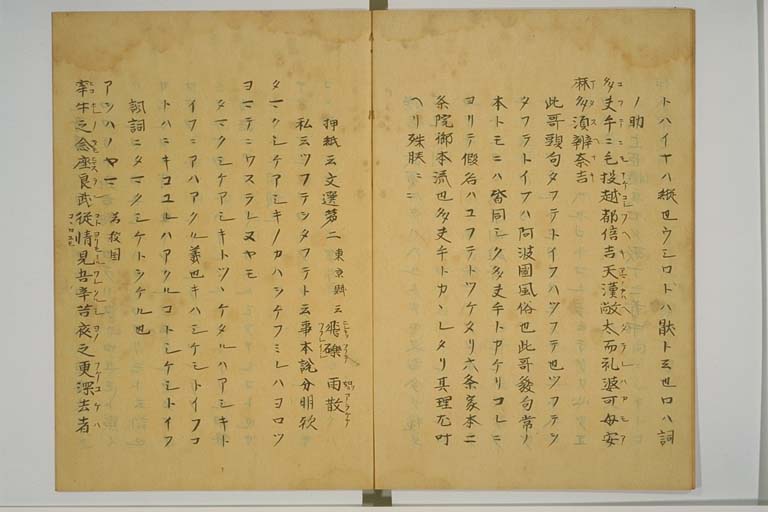 トハイヤハ縦也ウシロドハ散ト云也ロハ詞
ノ助
多丈手二毛投越都倍吉天漢敞太而礼婆可母安
麻多須辨奈吉
此哥頭句タフテトイフハツフテ也ツフテヲ
タフラトイフハ阿波國風俗也此哥發句常ノ
本トモニハ皆同シク多丈手トアケリコレニ
ヨリテ假名ハユフテトツケタリ六条家本二
条院御本流也多丈手トカヽレタリ其理尤叶
ヘリ殊勝〻〻
押紙云文選第二 東京賦云飛礫雨散
私云ツフテヲタフテト云事本説分明欤
タマクシケアシキノカハシケフミレハヨロツ
ヨマテニワスラレヌヤモ
タマクシケアシキトツヽケタルハアシキト
イフニアハアクル義也キハシケミトイフコ
トハニキコユルハアクルコトシケミトイフ
詞詞ニタマクシケトシケル也
アシハノヤマ 名抜国
牽牛之念座良武従情見吾辛苦夜之更深去者